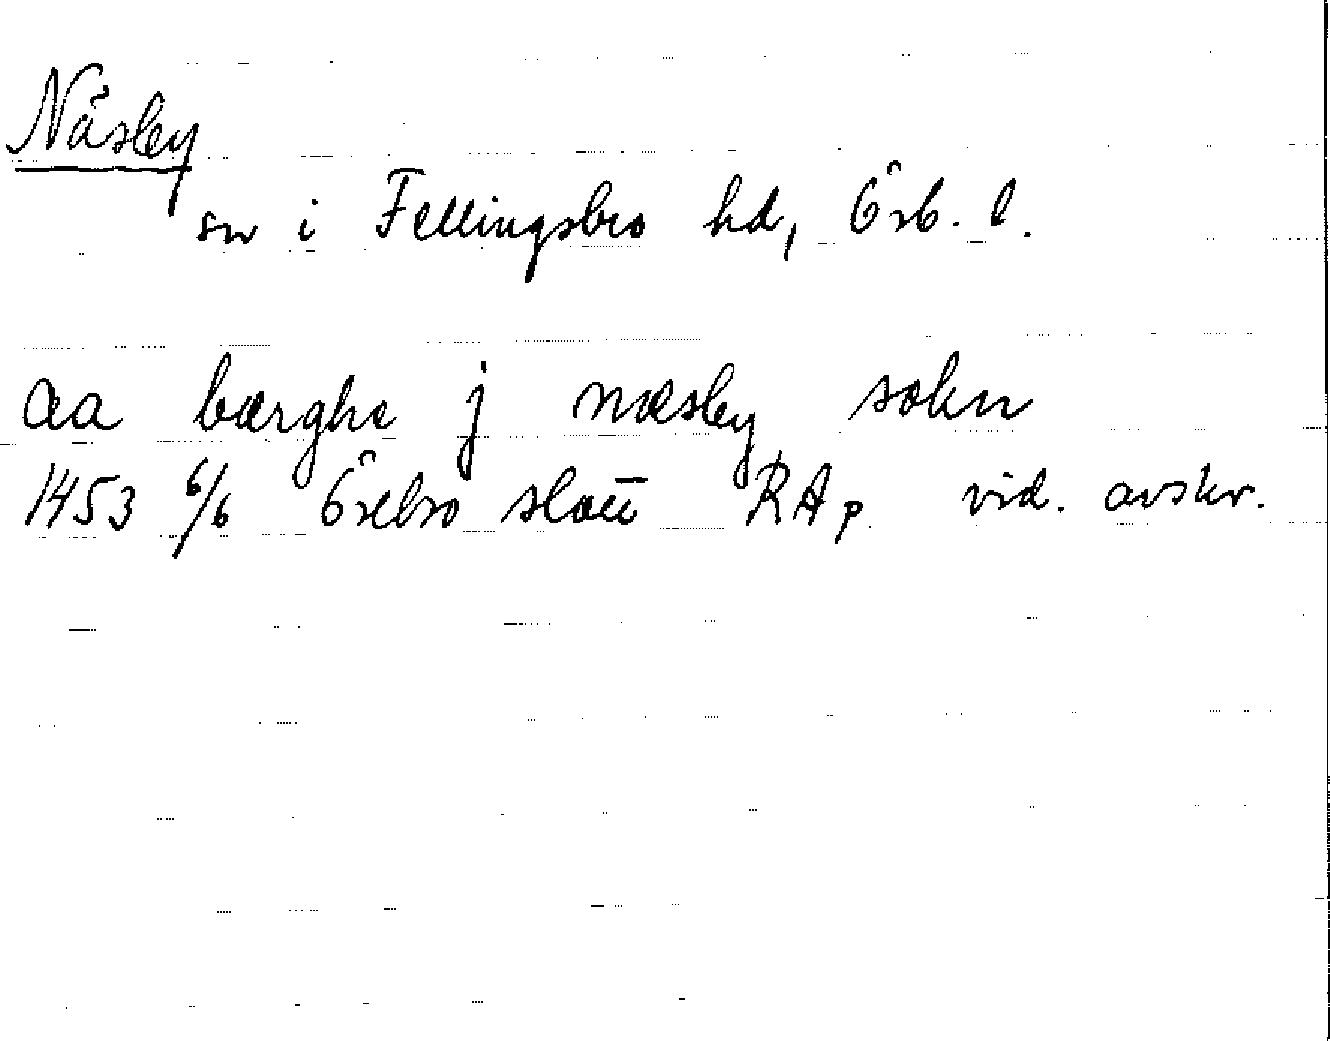 Näsby
sn i Fellingsbro hd, Örb. l.
aa bærghe j næsby sokn
1453 6/6 Örebro slott RAp vid. avskr.